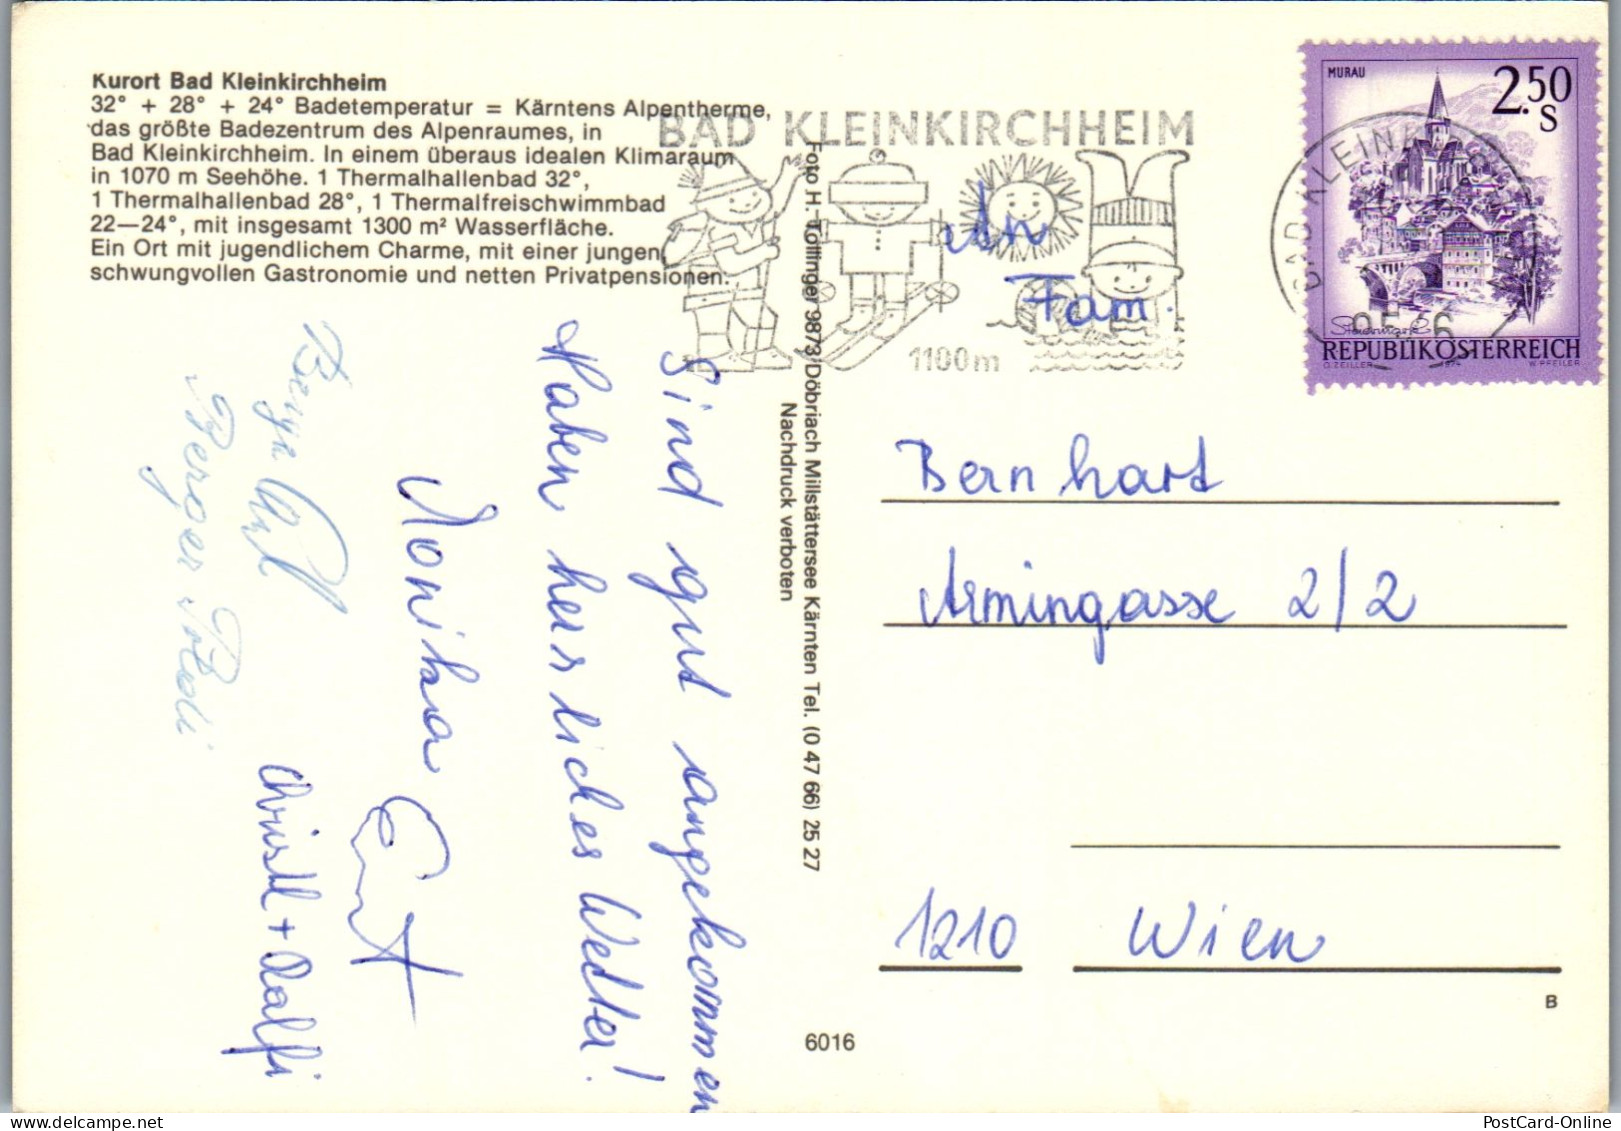 Kurort Bad Kleinkirchheim
32° + 28° + 24° Badetemperatur = Kärntens Alpentherme,
das größte Badezentrum des Alpenraumes, in
Bad Kleinkirchheim. In einem überaus idealen Klimaraum
in 1070 m Seehöhe. 1 Thermalhallenbad 32°,
1 Thermalhallenbad 28°, 1 Thermalfreischwimmbad
22—24°, mit insgesamt 1300 m² Wasserfläche.
Ein Ort mit jugendlichem Charme, mit einer jungen,
schwungvollen Gastronomie und netten Privatpensionen.
BAD KLEINKIRCHHEIM
1100m
MURAU
2.50
S
REPUBLIK ÖSTERREICH
O. ZEILLER 1974 W. PFEILER
BAD KLEINKIRCHHEIM
Sind gut angekommen
Haben herrliches Wetter!
Monika
Ernst
Christl + Adalfi
Berger Poldi
Foto H. Tollinger 9873 Döbriach Millstättersee Kärnten Tel. (0 47 66) 25 27
Nachdruck verboten
An
Fam.
Bernhart
Armingasse 2/2
1210 Wien
B
6016
PostCard-Online